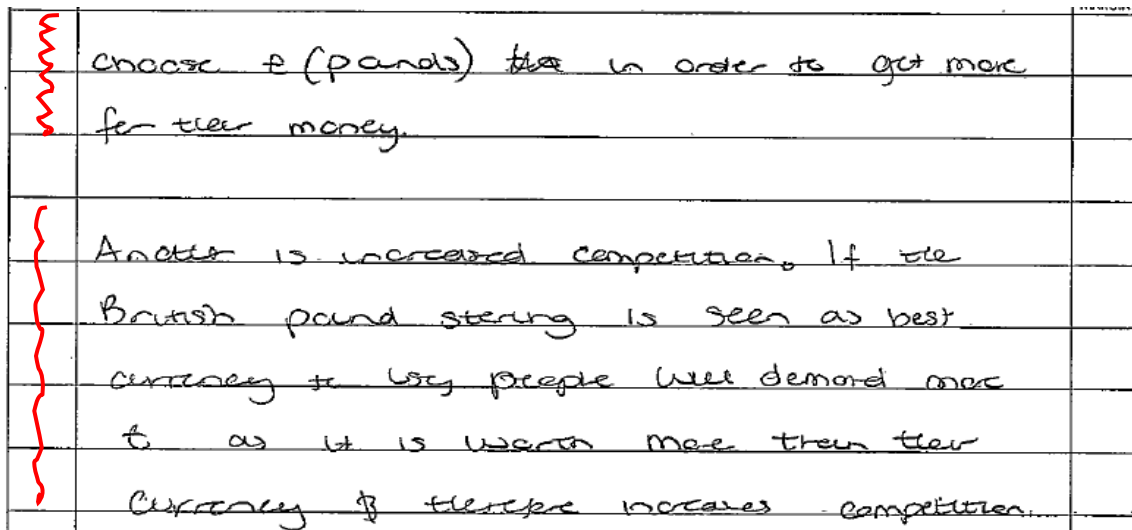 choose £ (pounds) in order to get more
for their money.
Another is increased competition. If the
British pound stering is seen as best
currency to use people will demand more
£ as it is worth more than their
currency & therefore increases competition.